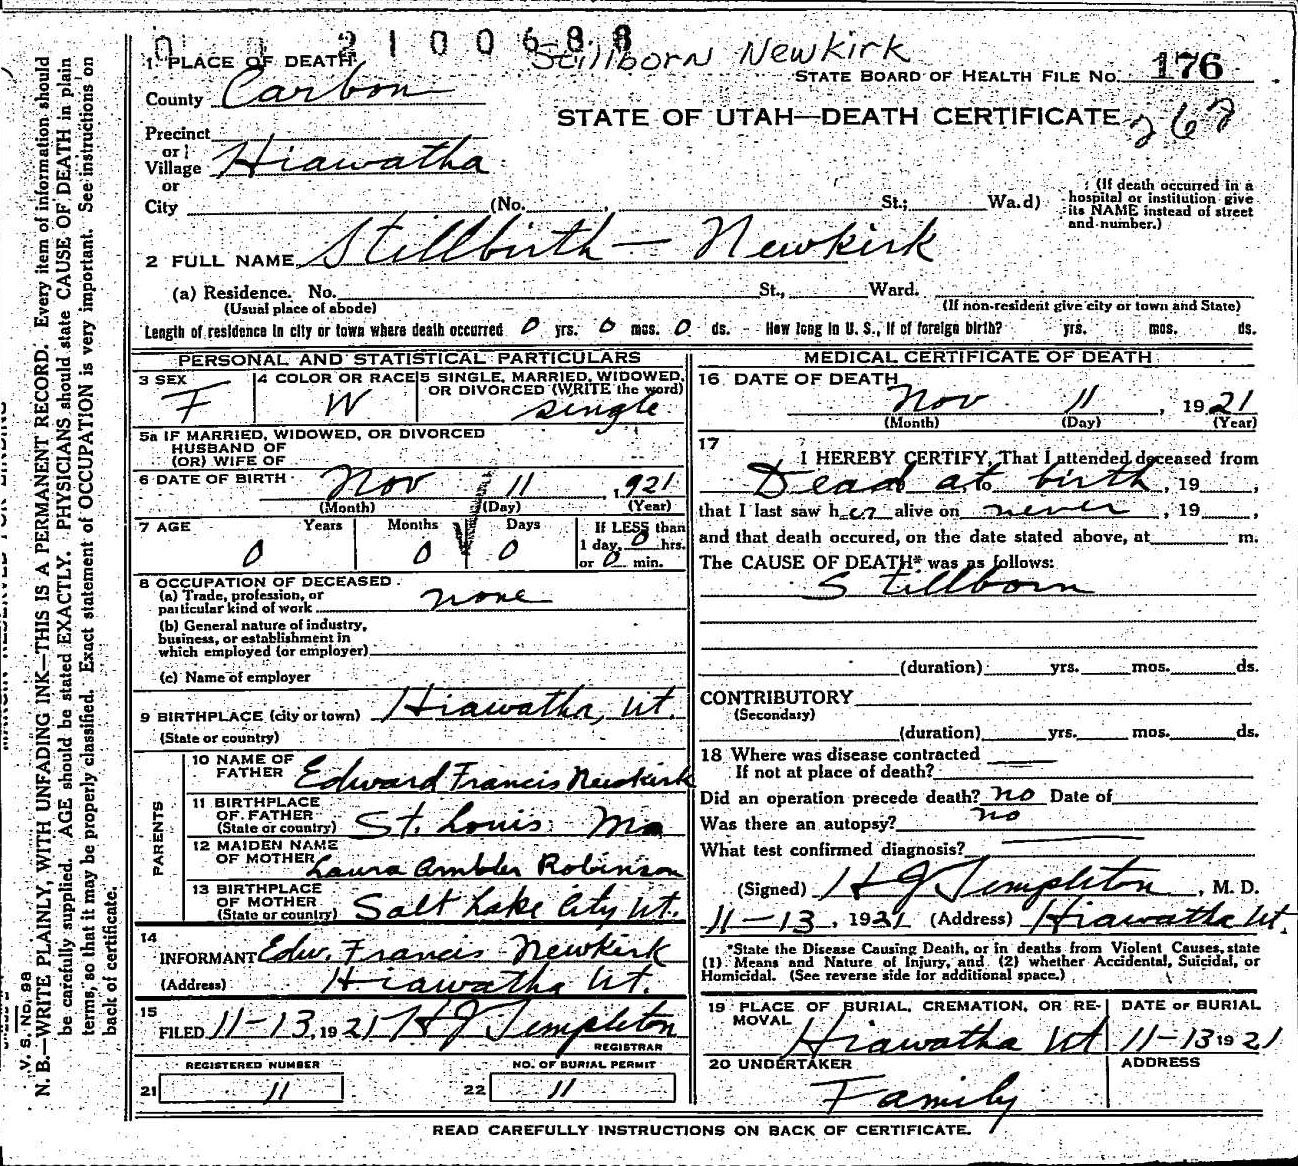 0 2100688
Stillborn Newkirk
1 PLACE OF DEATH
STATE BOARD OF HEALTH FILE No. 176
County Carbon
STATE OF UTAH—DEATH CERTIFICATE
262
Precinct
or
Village Hiawatha
or
City (No. , St.; Wa.d)
(If death occurred in a
hospital or institution give
its NAME instead of street
and number.)
2 FULL NAME Stillbirth — Newkirk
(a) Residence. No. St., Ward.
(Usual place of abode) (If non-resident give city or town and State)
Length of residence in city or town where death occurred 0 yrs. 0 mos. 0 ds. - How long in U. S., if of foreign birth? yrs. mos. ds.
PERSONAL AND STATISTICAL PARTICULARS
3 SEX F
4 COLOR OR RACE W
5 SINGLE, MARRIED, WIDOWED,
OR DIVORCED (WRITE the word)
single
5a IF MARRIED, WIDOWED, OR DIVORCED
HUSBAND OF
(OR) WIFE OF
6 DATE OF BIRTH Nov 11, 1921
(Month) (Day) (Year)
7 AGE Years Months Days If LESS than
0 0 0 1 day, 0 hrs.
or 0 min.
8 OCCUPATION OF DECEASED
(a) Trade, profession, or
particular kind of work none
(b) General nature of industry,
business, or establishment in
which employed (or employer)
(c) Name of employer
9 BIRTHPLACE (city or town) Hiawatha, Ut.
(State or country)
PARENTS
10 NAME OF
FATHER Edward Francis Newkirk
11 BIRTHPLACE
OF FATHER
(State or country) St. Louis Mo
12 MAIDEN NAME
OF MOTHER Laura Ambler Robinson
13 BIRTHPLACE
OF MOTHER
(State or country) Salt Lake City Ut.
14
INFORMANT Edw. Francis Newkirk
(Address) Hiawatha Ut.
15
FILED 11-13, 1921 H J Templeton
REGISTRAR
REGISTERED NUMBER
21 11
NO. OF BURIAL PERMIT
22 11
MEDICAL CERTIFICATE OF DEATH
16 DATE OF DEATH
Nov. 11, 1921
(Month) (Day) (Year)
17
I HEREBY CERTIFY, That I attended deceased from
Dead at to birth, 19 ,
that I last saw her alive on never, 19 ,
and that death occured, on the date stated above, at m.
The CAUSE OF DEATH* was as follows:
Stillborn
(duration) yrs. mos. ds.
CONTRIBUTORY
(Secondary)
(duration) yrs. mos. ds.
18 Where was disease contracted
If not at place of death?
Did an operation precede death? no Date of
Was there an autopsy? no
What test confirmed diagnosis?
(Signed) H J Templeton, M. D.
11-13, 1921 (Address) Hiawatha Ut.
*State the Disease Causing Death, or in deaths from Violent Causes, state
(1) Means and Nature of Injury, and (2) whether Accidental, Suicidal, or
Homicidal. (See reverse side for additional space.)
19 PLACE OF BURIAL, CREMATION, OR RE-
MOVAL
Hiawatha Ut
DATE OF BURIAL
11-13 1921
20 UNDERTAKER
Family
ADDRESS
READ CAREFULLY INSTRUCTIONS ON BACK OF CERTIFICATE.
V. S. No. 98
N. B.—WRITE PLAINLY, WITH UNFADING INK—THIS IS A PERMANENT RECORD. Every item of information should
be carefully supplied. AGE should be stated EXACTLY. PHYSICIANS should state CAUSE OF DEATH in plain
terms, so that it may be properly classified. Exact statement of OCCUPATION is very important. See instructions on
back of certificate.